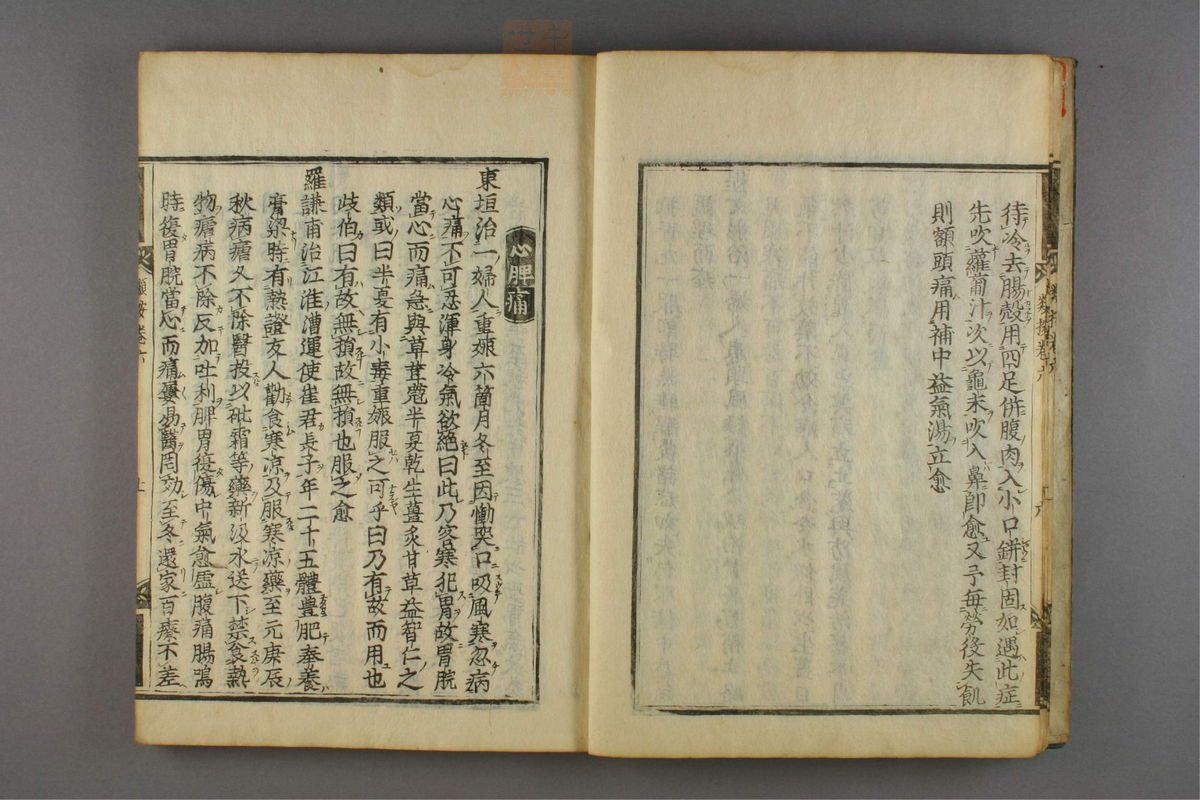 待冷去腸殼用四足併腹肉入小口鉼封固如遇此症
先吹蘿蔔汁次以龜末吹入鼻卽愈又予每勞役失飢
則額頭痛用補中益氣湯立愈
心脾痛
東垣治一婦人重娠六箇月冬至因慟哭口吸風寒忽病
心痛不可忍渾身冷氣欲絕曰此乃客寒犯胃故胃脘
當心而痛急與草荳蔻半夏乾生薑炙甘草益智仁之
類或曰半夏有小毒重娠服之可乎曰乃有故而用也
歧伯曰有故無損故無損也服之愈
羅謙甫治江淮漕運使崔君長子年二十五體豊肥奉養
膏粱時有熱證友人勸食寒凉及服寒凉藥至元庚辰
秋病瘧久不除醫投以砒霜等藥新汲水送下禁食熱
物瘧病不除反加吐利脾胃復傷中氣愈虛腹痛腸鳴
時復胃脘當心而痛屢易醫罔効至冬還家百療不差